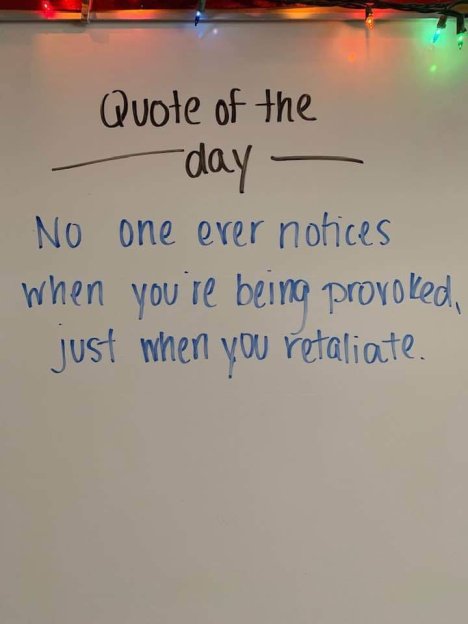 Quote of the
day
No one ever notices
when you're being provoked,
just when you retaliate.